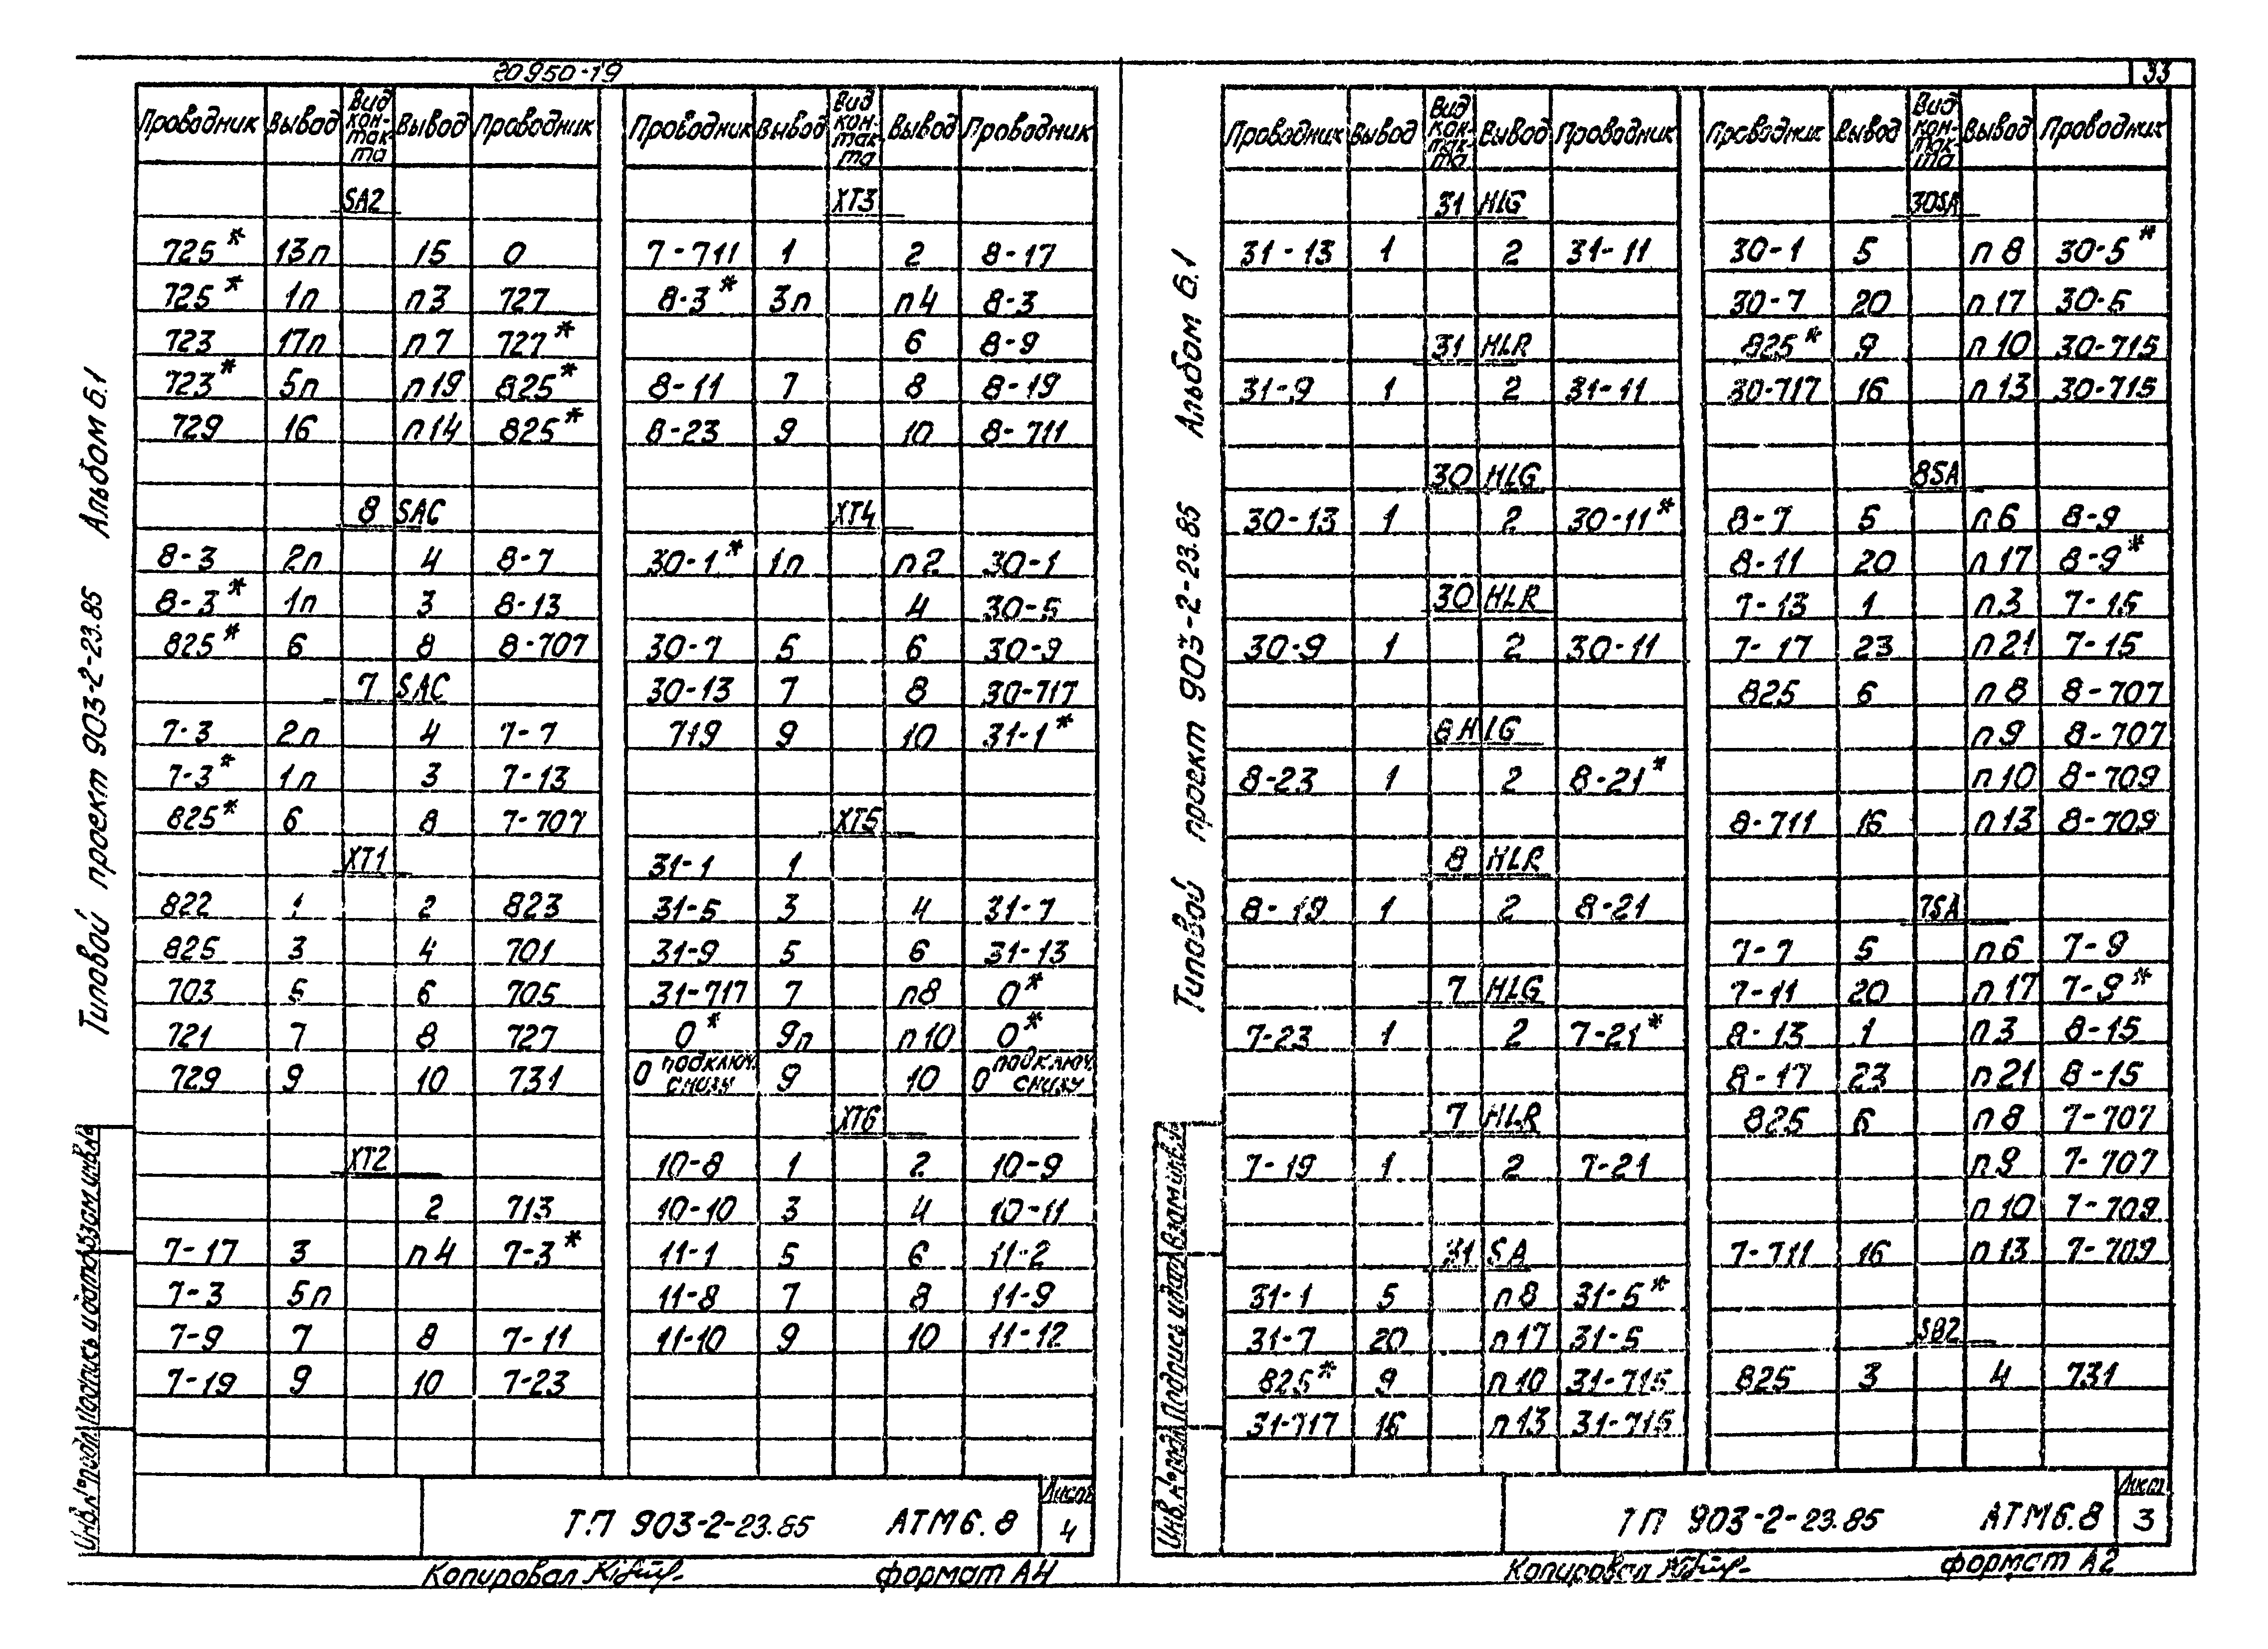 20950-19
33
Проводник Вывод Вид кон-так-та Вывод Проводник
SA2
725* 13п 15 0
725* 1п п3 727
723 17п п7 727*
723* 5п п19 825*
729 16 п14 825*
8 SAC
8-3 2п 4 8-7
8-3* 1п 3 8-13
825* 6 8 8-707
7 SAC
7-3 2п 4 7-7
7-3* 1п 3 7-13
825* 6 8 7-707
XT1
822 1 2 823
825 3 4 701
703 5 6 705
721 7 8 727
729 9 10 731
XT2
2 713
7-17 3 п4 7-3*
7-3 5п
7-9 7 8 7-11
7-19 9 10 7-23
Проводник Вывод Вид кон-так-та Вывод Проводник
XT3
7-711 1 2 8-17
8-3* 3п п4 8-3
6 8-9
8-11 7 8 8-19
8-23 9 10 8-711
XT4
30-1* 1п п2 30-1
4 30-5
30-7 5 6 30-9
30-13 7 8 30-717
719 9 10 31-1*
XT5
31-1 1
31-5 3 4 31-7
31-9 5 6 31-13
31-717 7 п8 0*
0* 9п п10 0*
0 подключ. снизу 9 10 0 подключ. снизу
XT6
10-8 1 2 10-9
10-10 3 4 10-11
11-1 5 6 11-2
11-8 7 8 11-9
11-10 9 10 11-12
Типовой проект 903-2-23.85 Альбом 6.1
Инв.№ подл. Подпись и дата Взам инв.№
ТП 903-2-23.85 АТМ6.8
Лист
4
Копировал
формат А4
Проводник Вывод Вид кон-так-та Вывод Проводник
31 HLG
31-13 1 2 31-11
31 HLR
31-9 1 2 31-11
30 HLG
30-13 1 2 30-11*
30 HLR
30-9 1 2 30-11
8 HLG
8-23 1 2 8-21*
8 HLR
8-19 1 2 8-21
7 HLG
7-23 1 2 7-21*
7 HLR
7-19 1 2 7-21
31 SA
31-1 5 п8 31-5*
31-7 20 п17 31-5
825* 9 п10 31-715
31-717 16 п13 31-715
Проводник Вывод Вид кон-так-та Вывод Проводник
30SA
30-1 5 п8 30-5*
30-7 20 п17 30-5
825* 9 п10 30-715
30-717 16 п13 30-715
8SA
8-7 5 п6 8-9
8-11 20 п17 8-9*
7-13 1 п3 7-15
7-17 23 п21 7-15
825 6 п8 8-707
п9 8-707
п10 8-709
8-711 16 п13 8-709
7SA
7-7 5 п6 7-9
7-11 20 п17 7-9*
8-13 1 п3 8-15
8-17 23 п21 8-15
825 6 п8 7-707
п9 7-707
п10 7-709
7-711 16 п13 7-709
SB2
825 3 4 731
Типовой проект 903-2-23.85 Альбом 6.1
Инв.№ подл. Подпись и дата Взам инв.№
ТП 903-2-23.85 АТМ6.8
Лист
3
Копировал
формат А2